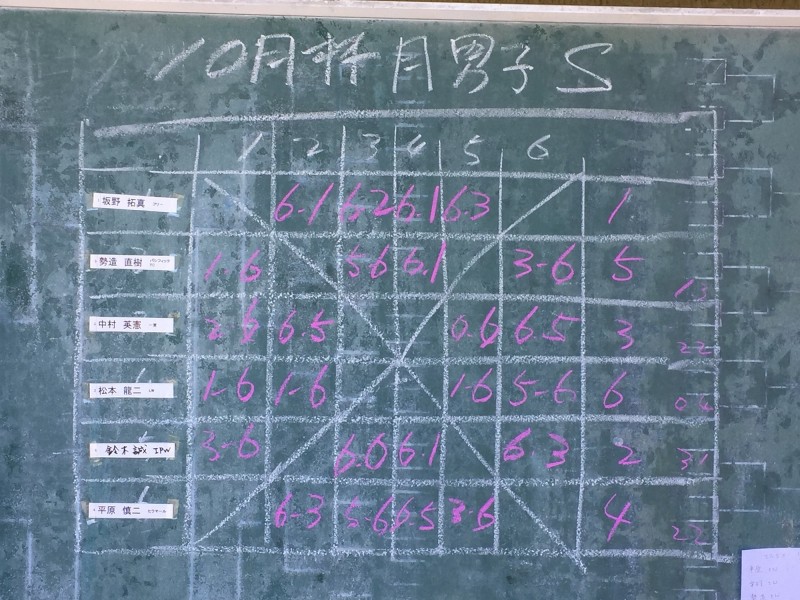 10月杯月男子S
1 2 3 4 5 6
坂野 拓真 6-1 6-2 6-1 6-3 1
勢造 直樹 1-6 5-6 6-1 3-6 5 13
中村 英憲 2-6 6-5 0-6 6-5 3 22
松本 龍二 1-6 1-6 1-6 5-6 6 04
鈴木 誠 IPW 3-6 6-0 6-1 6-3 2 31
平原 慎二 6-3 5-6 6-5 3-6 4 22